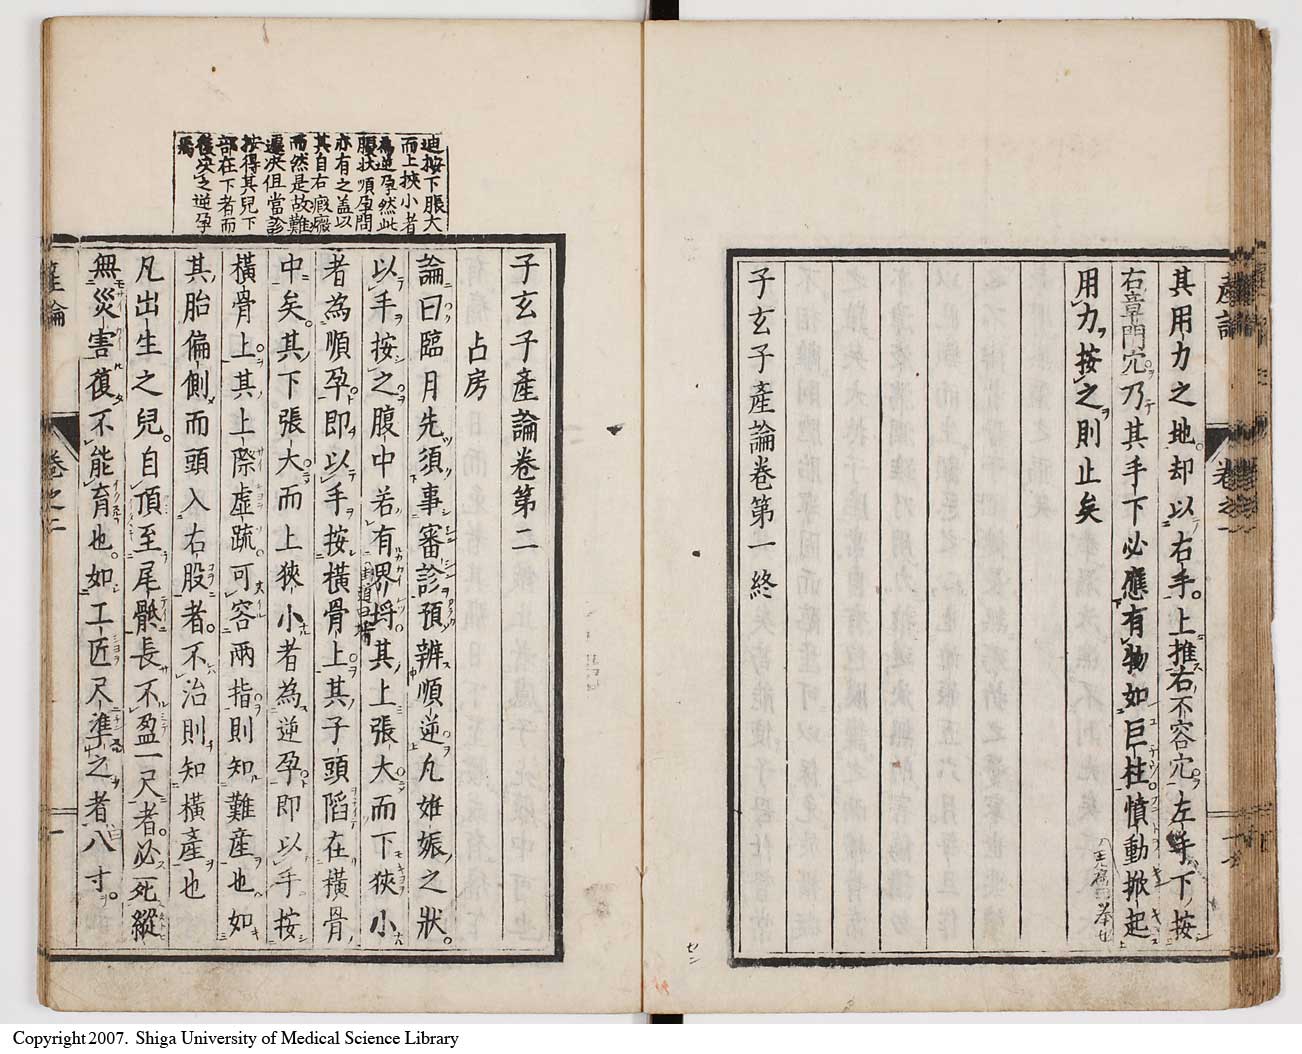 産論
卷之一
其用力之地却以右手上推右不容穴左手下按
右章門穴乃其手下必應有物如巨柱憤動掀起
用力按之則止矣
子玄子產論卷第一終
子玄子產論卷第二
占房
論曰臨月先須事審診預辨順逆凡妊娠之狀
以手按之腹中若有界埒其上張大而下狹小
者為順孕即以手按橫骨上其子頭陷在橫骨
中矣其下張大而上狹小者為逆孕即以手按
橫骨上其上際虛疏可容兩指則知難産也如
其胎偏側而頭入右股者不治則知橫產也
凡出生之兒自頂至尾骶長不盈一尺者必死縱
無災害復不能育也如工匠尺準之者八寸
迪按下脹大
而上挾小者
為逆孕然此
腹狀順孕間
亦有之盖以
其自右瘕癥
而然是故難
遽决但當診
按得其兒下
部在下者而
後决之逆孕
焉
産論
卷之二
Copyright 2007. Shiga University of Medical Science Library